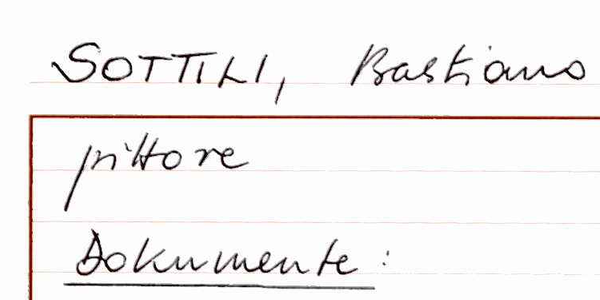 SOTTILI, Bastiano
pittore
Dokumente: